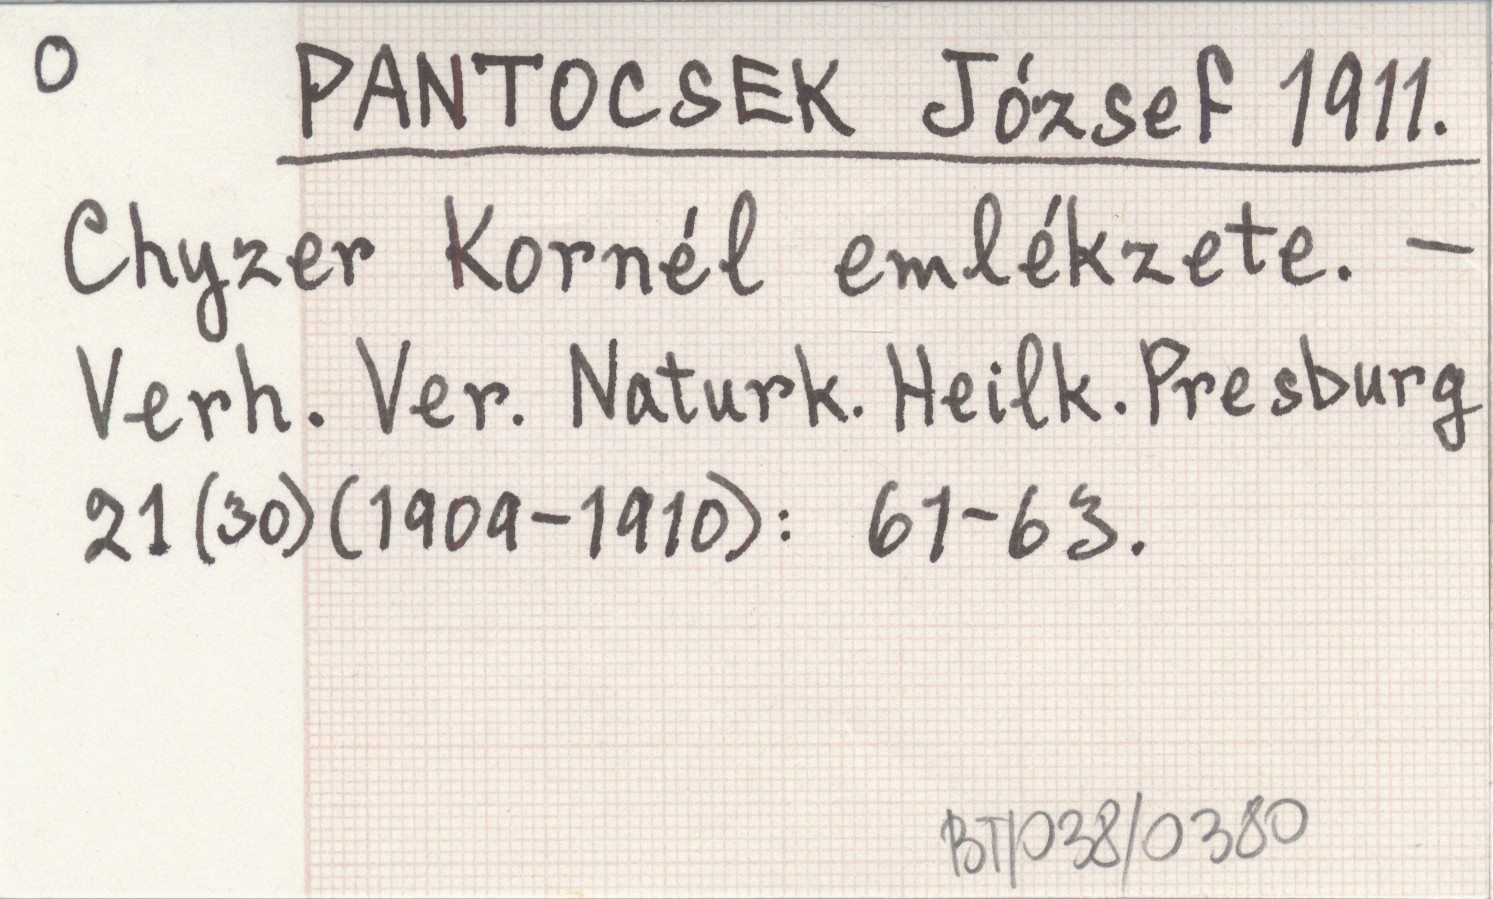 O PANTOCSEK József 1911.
Chyzer Kornél emlékzete. –
Verh. Ver. Naturk. Heilk. Presburg
21(30)(1909-1910): 61-63.
BT/038/0380